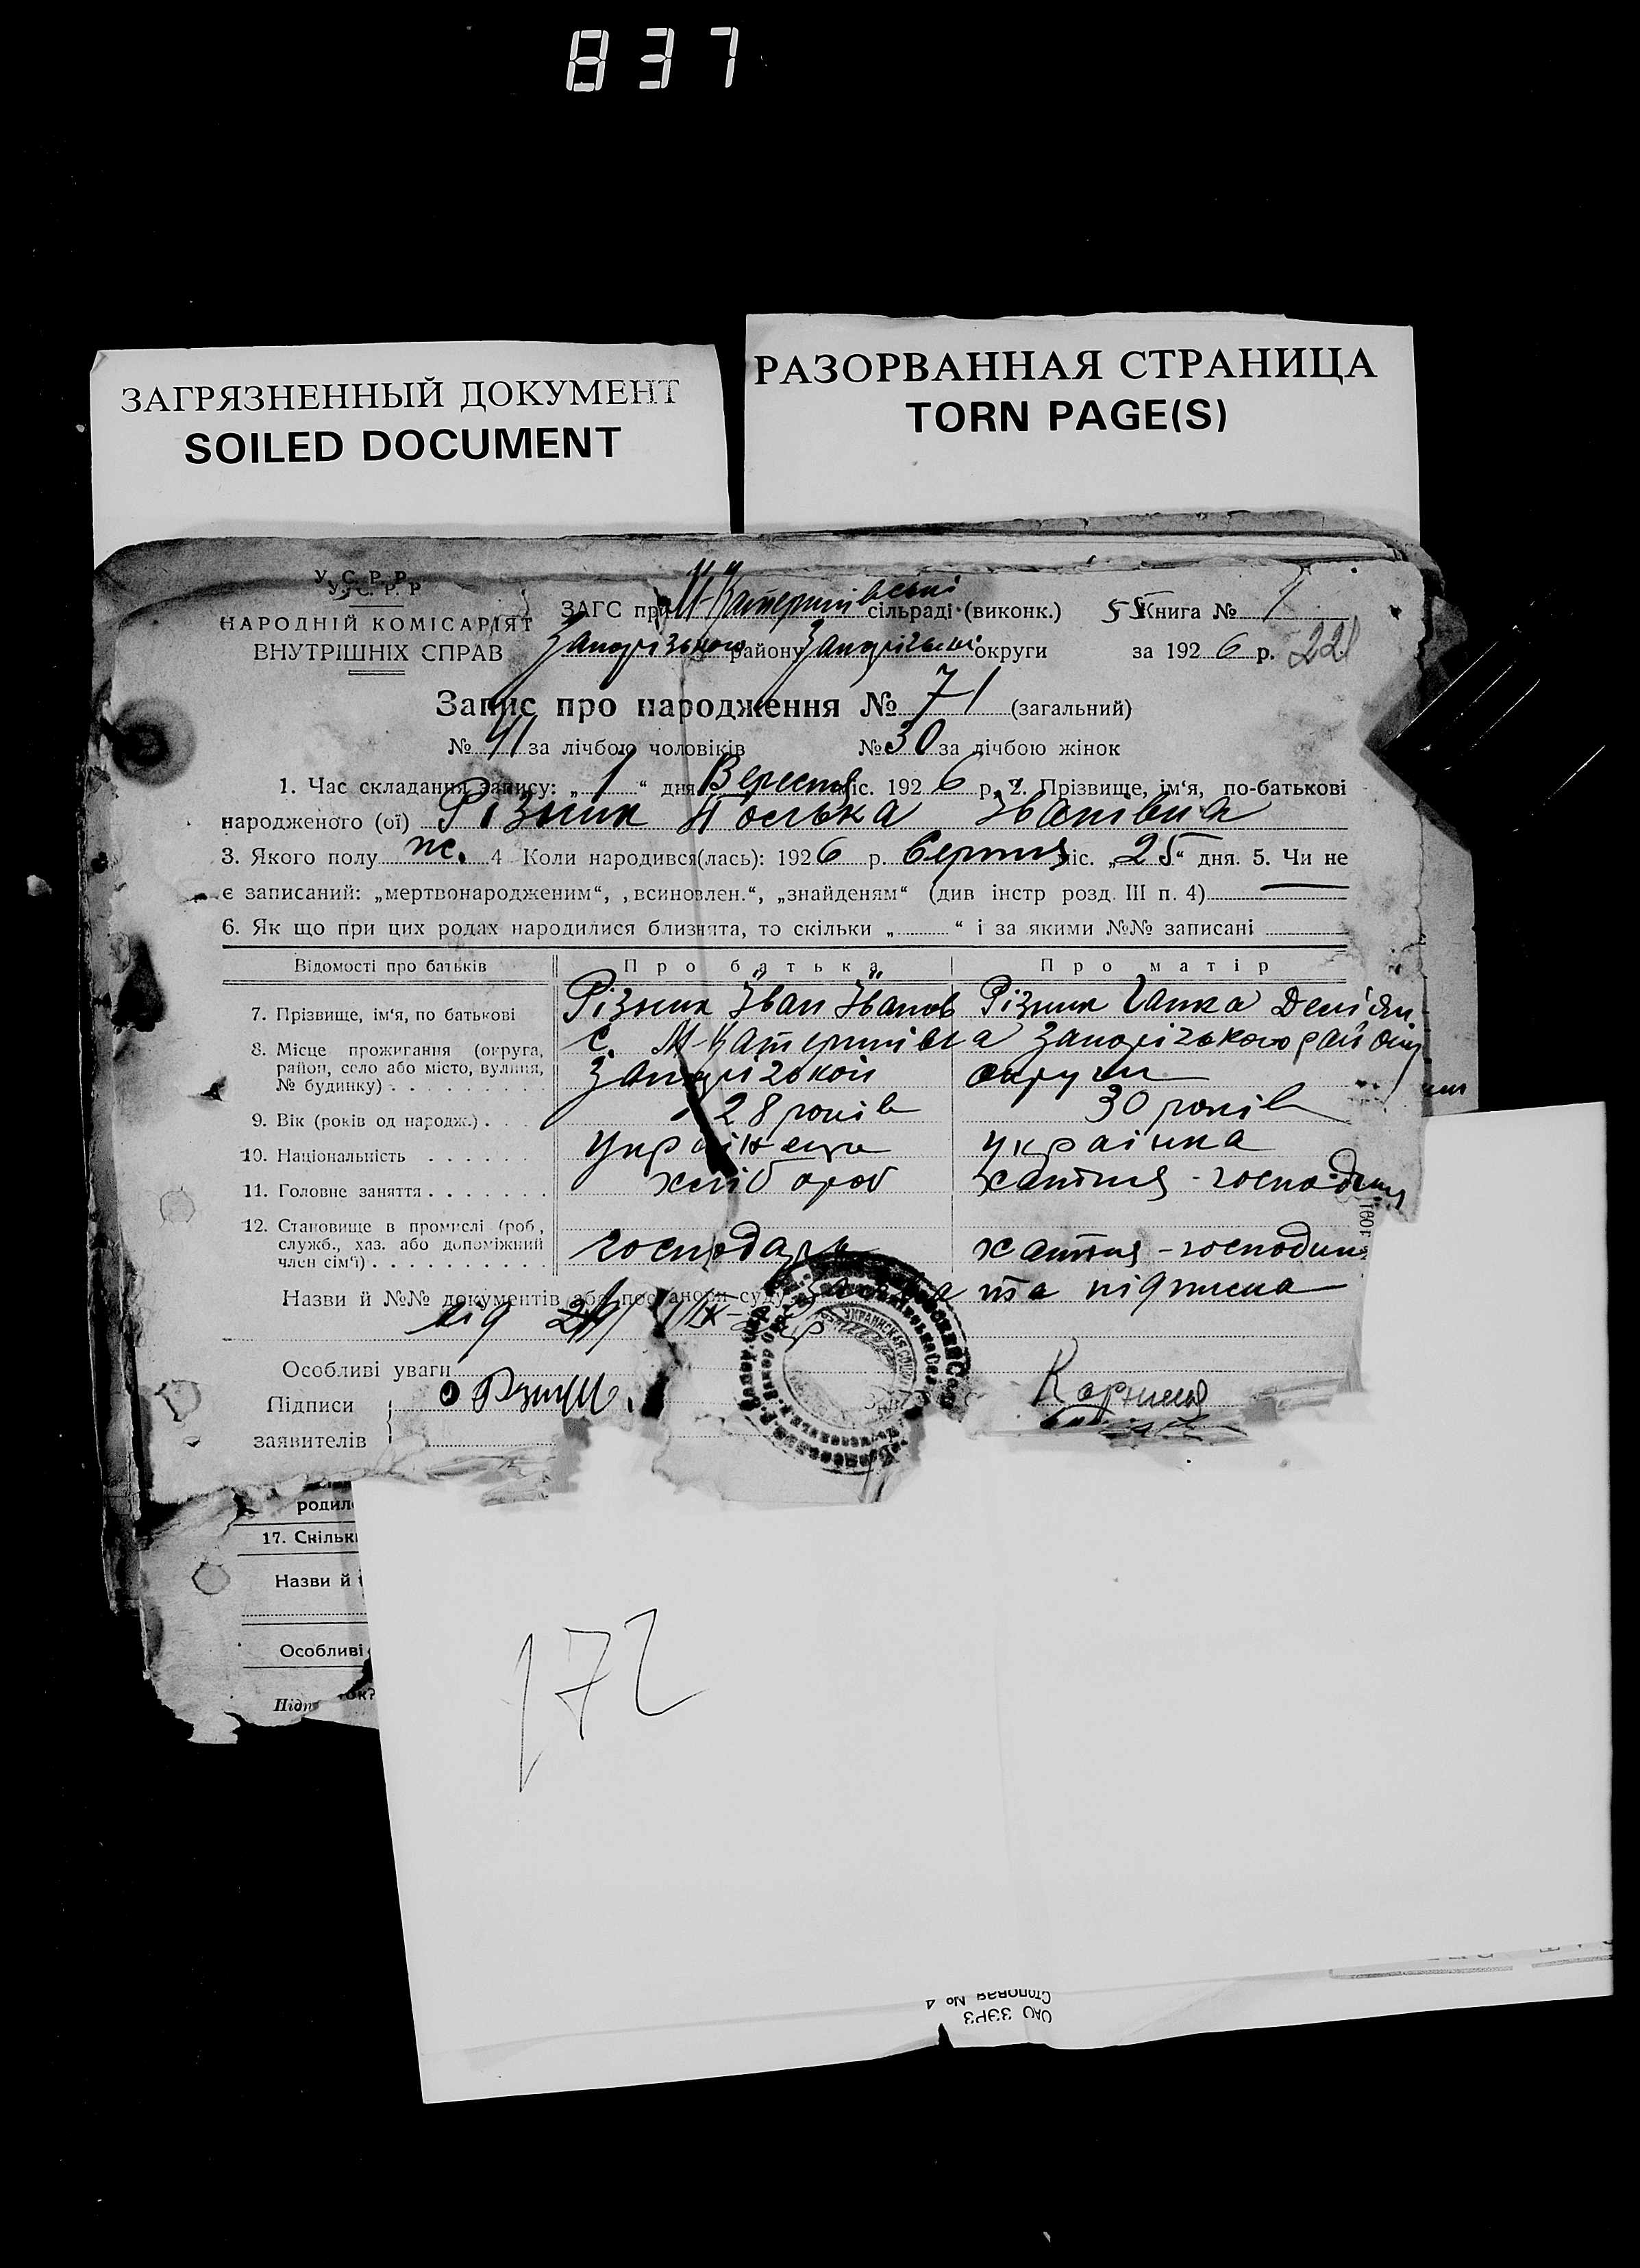 837
ЗАГРЯЗНЕННЫЙ ДОКУМЕНТ
SOILED DOCUMENT
РАЗОРВАННАЯ СТРАНИЦА
TORN PAGE(S)
У. С. Р. Р.
НАРОДНІЙ КОМІСАРІЯТ
ВНУТРІШНІХ СПРАВ
ЗАГС при М-Катеринівській сільраді (виконк.) Книга № 1
Запорізького району Запорізької округи за 1926 р. 221
Запис про народження № 71 (загальний)
№ 41 за лічбою чоловіків № 30 за лічбою жінок
1. Час складання запису: „1“ дня Вересня міс. 1926 р. 2. Прізвище, ім‘я, по-батькові
народженого (ої) Різник Іванівна
3. Якого полу ж. 4 Коли народився(лась): 1926 р. Серпня міс. „25“ дня. 5. Чи не
є записаний: „мертвонародженим“, „всиновлен.“, „знайденям“ (див інстр розд. III п. 4)
6. Як що при цих родах народилися близнята, то скільки „ “ і за якими №№ записані
Відомості про батьків Про батька Про матір
7. Прізвище, ім‘я, по батькові Різник Іван Іванов Різник Ганка Демʼян
8. Місце прожигання (округа, район, село або місто, вулиця, № будинку) с. М-Катеринівка Запорізького району
Запорізької округи
9. Вік (років од народж.) 28 років 30 років
10. Національність українець українка
11. Головне заняття хлібороб хатня-господиня
12. Становище в промислі (роб, служб., хаз. або допоміжний член сім‘ї) господарь хатня-господин
Назви й №№ документів або постанови суду та підписка
від
Особливі уваги
Підписи
заявителів
родил
17. Скільк
Назви й
Особливі
Підп
172
ОАО ЗЭРЗ
Столовая № 4